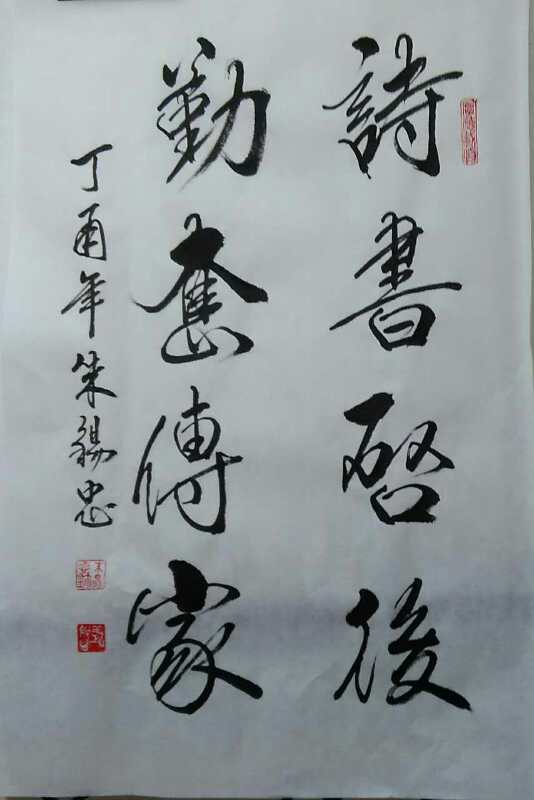 詩書啓後
勤奮傳家
丁酉年朱錫忠